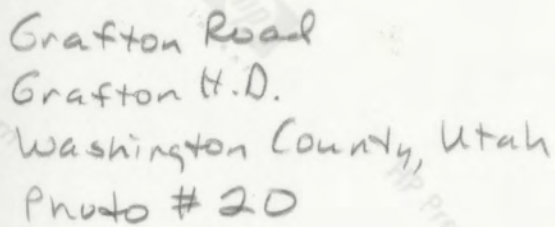 Grafton Road
Grafton H.D.
Washington County, Utah
Photo # 20